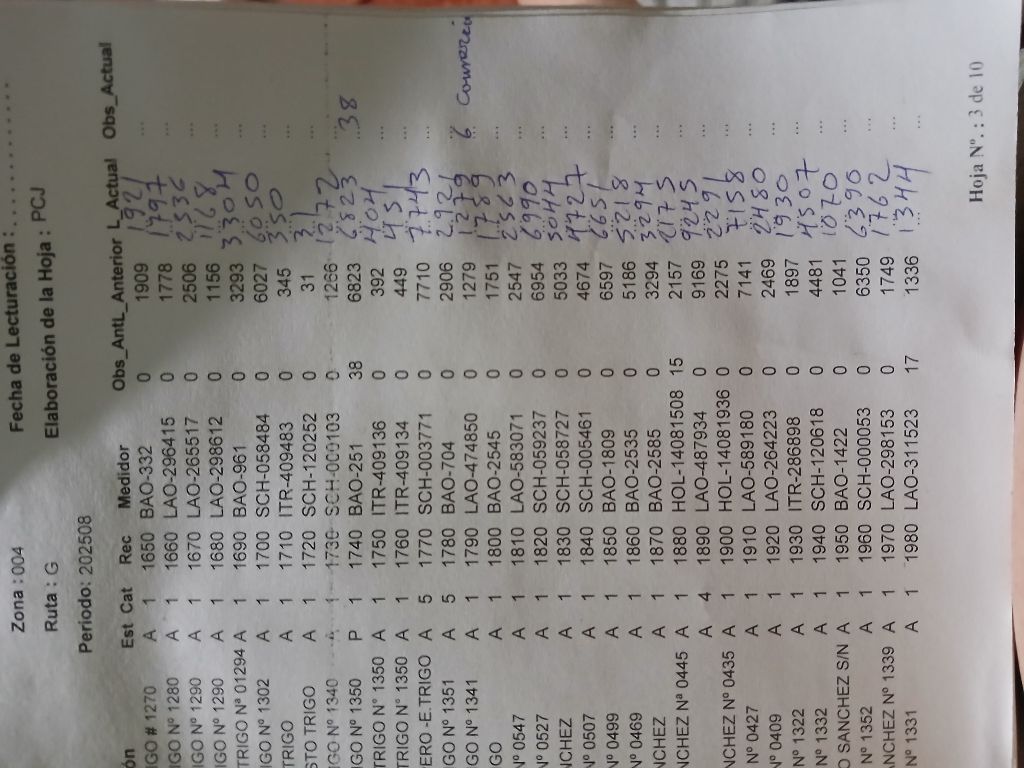 Zona : 004 Fecha de Lecturación : ....................
Ruta : G Elaboración de la Hoja : PCJ
Periodo: 202508
ón Est Cat Rec Medidor Obs_AntL_Anterior L_Actual Obs_Actual
IGO # 1270 A 1 1650 BAO-332 0 1909 1921 ...
IGO Nº 1280 A 1 1660 LAO-296415 0 1778 1797 ...
IGO Nº 1290 A 1 1670 LAO-265517 0 2506 2536 ...
IGO Nº 1290 A 1 1680 LAO-298612 0 1156 1168 ...
TRIGO Nº 01294 A 1 1690 BAO-961 0 3293 3304 ...
IGO Nº 1302 A 1 1700 SCH-058484 0 6027 6050 ...
TRIGO A 1 1710 ITR-409483 0 345 350 ...
STO TRIGO A 1 1720 SCH-120252 0 31 31 ...
IGO Nº 1340 A 1 1730 SCH-000103 0 1266 1272 ...
IGO Nº 1350 P 1 1740 BAO-251 38 6823 6823 ... 38
TRIGO N° 1350 A 1 1750 ITR-409136 0 392 404 ...
TRIGO N° 1350 A 1 1760 ITR-409134 0 449 451 ...
PERO -E.TRIGO A 5 1770 SCH-003771 0 7710 7743 ...
IGO N° 1351 A 5 1780 BAO-704 0 2906 2921 ...
IGO Nº 1341 A 1 1790 LAO-474850 0 1279 1279 ... 6
IGO A 1 1800 BAO-2545 0 1751 1789 ...
Nº 0547 A 1 1810 LAO-583071 0 2547 2563 ...
Nº 0527 A 1 1820 SCH-059237 0 6954 6990 ...
NCHEZ A 1 1830 SCH-058727 0 5033 5044 ...
Nº 0507 A 1 1840 SCH-005461 0 4674 4727 ...
Nº 0499 A 1 1850 BAO-1809 0 6597 6651 ...
Nº 0469 A 1 1860 BAO-2535 0 5186 5218 ...
NCHEZ A 1 1870 BAO-2585 0 3294 3294 ...
NCHEZ Nª 0445 A 1 1880 HOL-14081508 15 2157 2175 ...
A 4 1890 LAO-487934 0 9169 9245 ...
NCHEZ Nº 0435 A 1 1900 HOL-14081936 0 2275 2291 ...
Nº 0427 A 1 1910 LAO-589180 0 7141 7158 ...
Nº 0409 A 1 1920 LAO-264223 0 2469 2480 ...
N° 1322 A 1 1930 ITR-286898 0 1897 1930 ...
Nº 1332 A 1 1940 SCH-120618 0 4481 4507 ...
O SANCHEZ S/N A 1 1950 BAO-1422 0 1041 1070 ...
Nº 1352 A 1 1960 SCH-000053 0 6350 6390 ...
ANCHEZ Nº 1339 A 1 1970 LAO-298153 0 1749 1762 ...
Nº 1331 A 1 1980 LAO-311523 17 1336 1344 ...
Hoja Nº. : 3 de 10